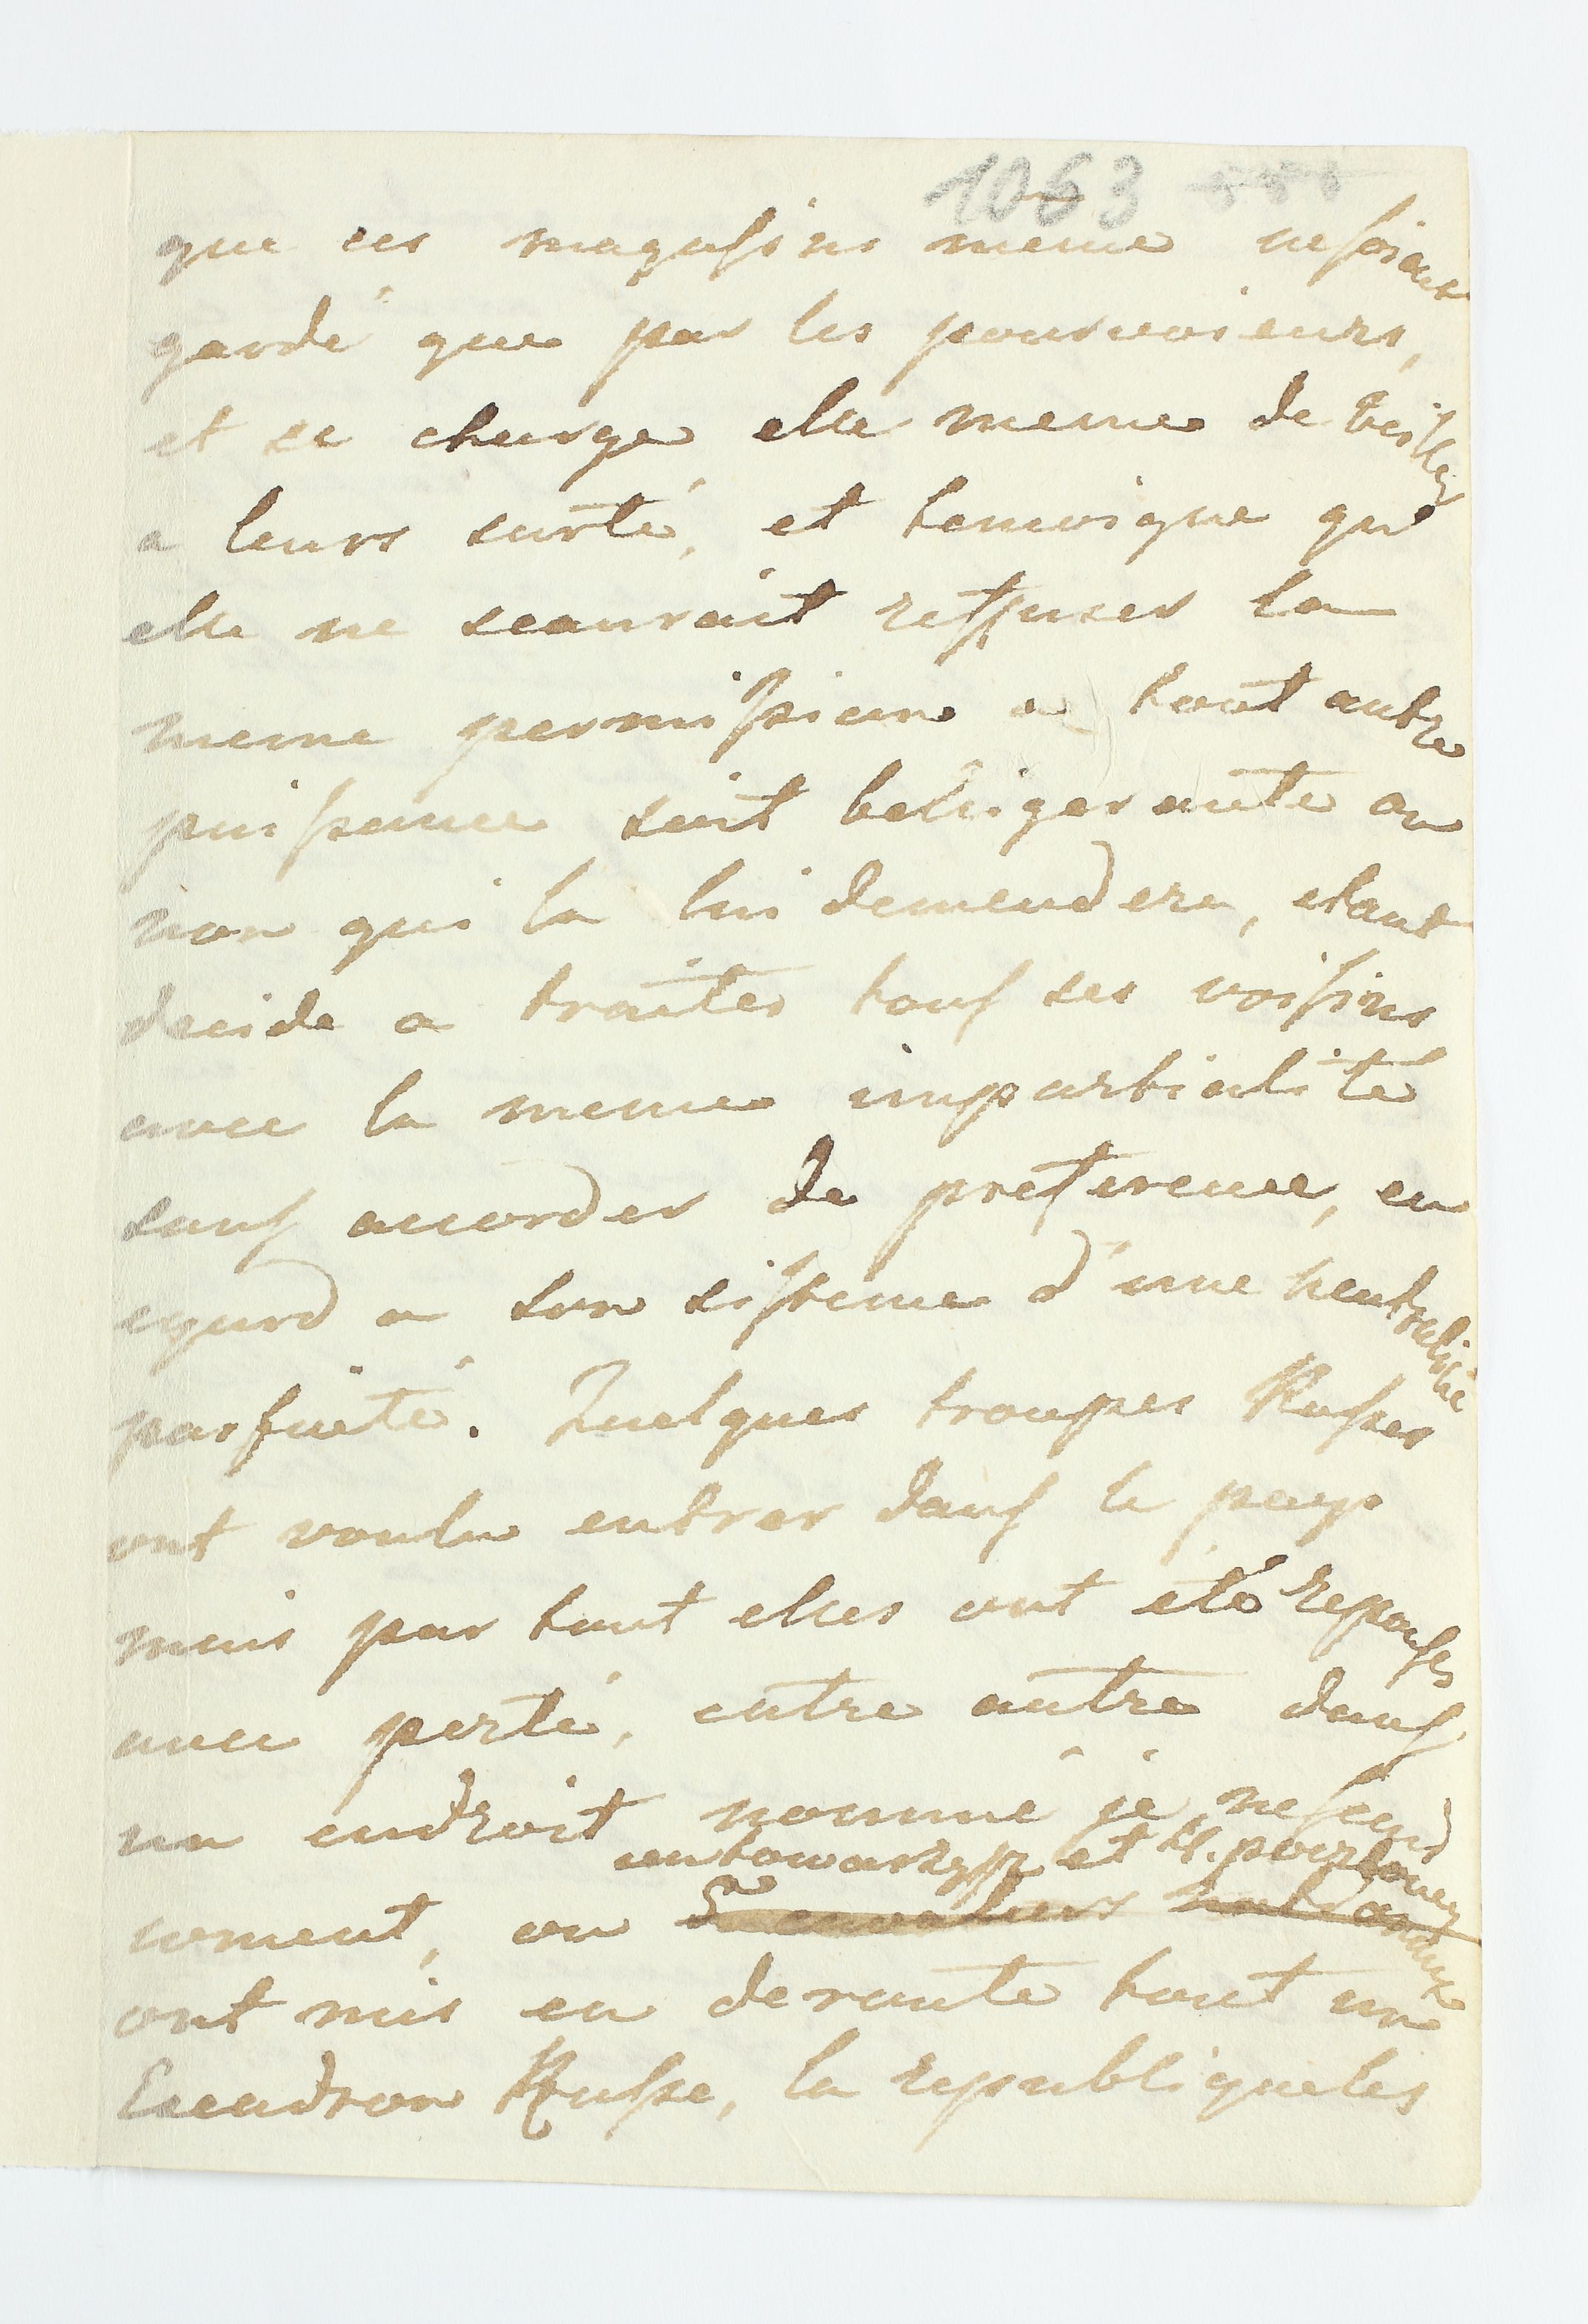 1063
que ces magasins meme ne soient
gardé que par les pourvoieurs,
et se charge elle meme de veiller
a leurs surté, et temoigne qu'
elle ne scaurait reffuser la
meme permission a tout autre
puissance soit beligerante ou
non qui la lui demendera, etant
decide a traiter tous ses voisins
avec la meme impartialité
sans accorder de preference, en
egard a son sisteme d'une neutralité
parfaité. Quelques troupes Russes
ont voulu entrer dans le pays
mais par tout elles ont été repousses
avec perté, entre autre dans
un endroit nommé je ne scais
towarzysz et
coment, ou
ont mis en deroute tout un
Escadron Russe, la republique les